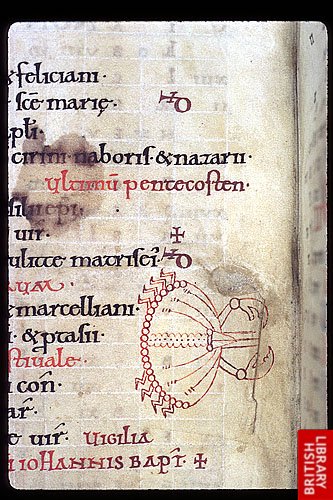 & feliciani·
sce marie·
apli·
cirini naboris & nazarii·
Ultimũ pentecosten·
epi·
uir·
iulitte matris ei·
marcelliani·
& ꝓtasii·
estiuale·
con·
uir· VIGILIA
IOHANNIS BAPT·
BRITISH
LIBRARY